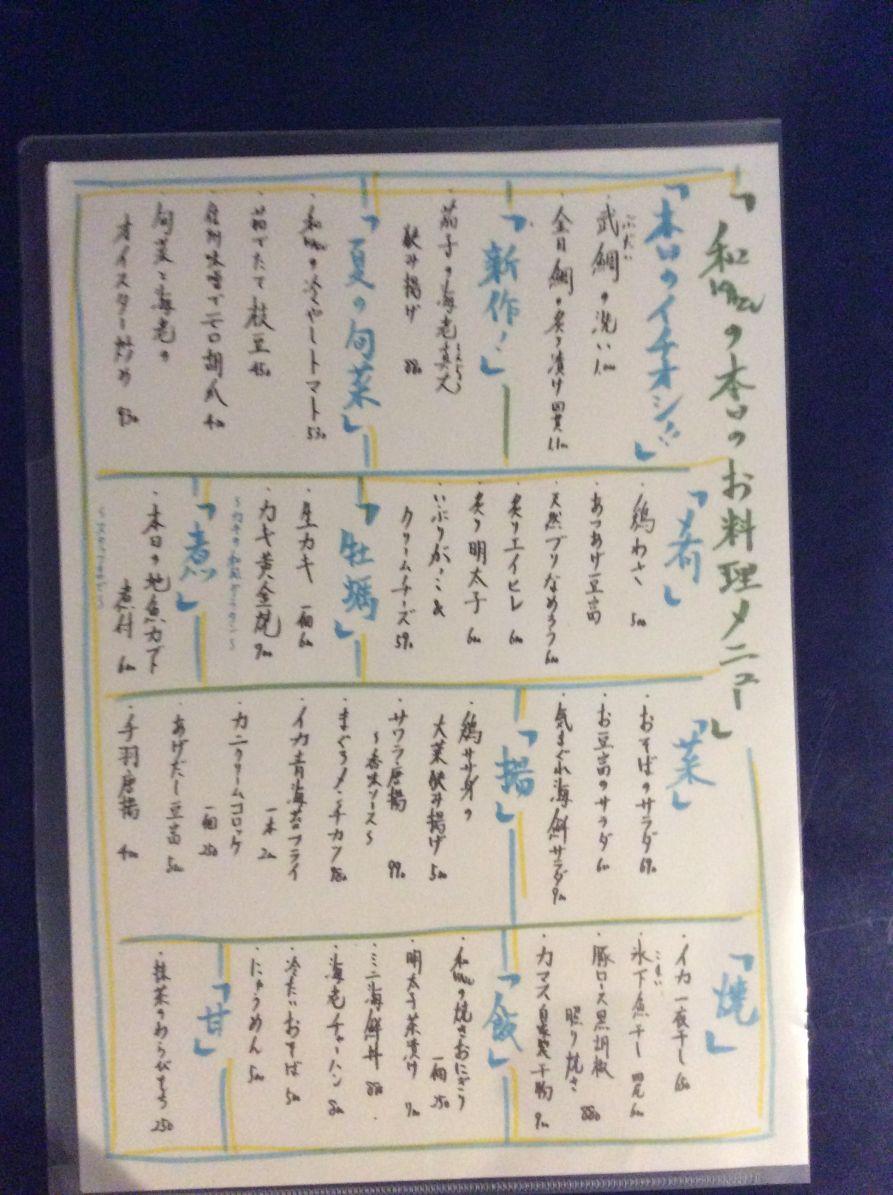 「和の本日のお料理メニュー」
「本日のイチオシ!!」
ぶだい
・武鯛の洗い
・金目鯛の炙り漬け 四貫 1.1००
「新作!」
・茄子の海老真丈
挟み揚げ 880
「夏の旬菜」
・の冷やしトマト 530
・茹でたて枝豆 450
・信州味噌でモロ胡瓜 400
・旬菜と海老の
オイスター炒め 930
「肴」
・鶏わさ 500
・あつあげ豆富
・天然ブリなめろう 600
・炙りエイヒレ 600
・炙り明太子 600
・いぶりがっこ&
クリームチーズ 590
「牡蠣」
・生カキ 一個 600
・カキ黄金焼 900
「煮」
・本日の地魚カブト
煮付 600
「菜」
・おそばのサラダ 690
・お豆富のサラダ 600
・気まぐれ海鮮サラダ 900
「揚」
・鶏ササ身の
大葉挟み揚げ 500
・サワラ唐揚 990
〜香味ソース〜
・まぐろメンチカツ 880
・イカ青海苔フライ
一本 200
・カニクリームコロッケ
一個 250
・あげだし豆富 500
・手羽唐揚 400
「焼」
・イカ一夜干し 650
こまい
・氷下魚干し 四尾 600
・豚ロース黒胡椒
照り焼き 880
・カマス自家製干物 900
「飯」
・の焼きおにぎり
一個 250
・明太子茶漬け 700
・ミニ海鮮丼 880
・海老チャーハン 800
・冷たいおそば 500
・にゅうめん 500
「甘」
・抹茶のわらびもち 250